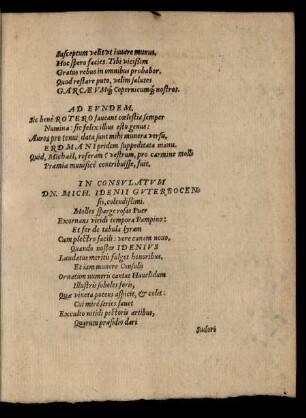 Susceptum velit vt iuuere munus,
Hoc spero facies. Tibi vicissim
Gratus rebus in omnibus probabor.
Quod restare puto, velim salutes
GARCÆVMq́; Copernicumq́; nostros.
AD EVNDEM,
Sic benè ROTERO faueant cœlestia semper
Numina: sic felix illius esto genus:
Aurea pro tenui data sunt mihi munera versu,
ERDMANI pridem suppeditata manu.
Quid, Michaël, referam? vestrum, pro carmine molli
Præmia munificè contribuisse, fuit.
IN CONSVLATVM
DN. MICH. IDENII GVTERBOCEN-
sis, colendissimi.
Molles sparge rosas Puer
Exornans viridi tempora Pampino:
Et fer de tabula lyram
Cum plectro facili: vere canam nouo,
Quando noster IDENIVS
Laudatus meritis fulget honoribus,
Et iam munere Consulis
Ornatum numeris cantat Hauelidum
Illustris soboles foris,
Quæ vineta potens aspicit, & colit:
Cui mirè series fauet
Exculto nitidi pectoris artibus,
Quarum præsidio dari
Sudoris